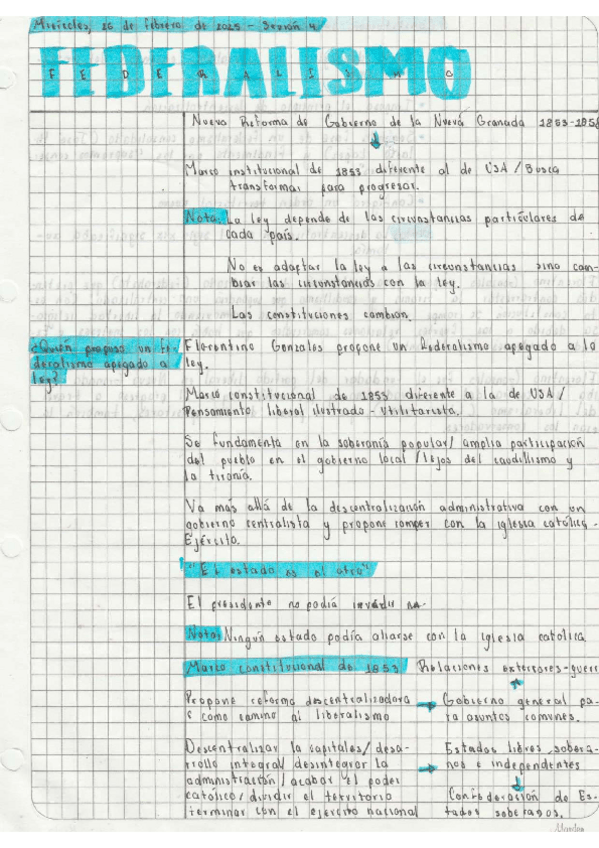 Miercoles, 26 de febrero de 2025 - Sesión 4
FEDERALISMO
FEDERALISMO
Nueva Reforma de Gobierno de la Nueva Granada 1853-1858
Marco institucional de 1853 diferente al de USA / Busca
transformar para progresar.
Nota: La ley depende de las circunstancias particulares de
cada país.
No es adaptar la ley a las circunstancias sino cam-
biar las circunstancias con la ley.
Las constituciones cambian.
¿Quién propuso un fe-
deralismo apegado a
ley?
Florentino Gonzales propone un federalismo apegado a la
ley.
Marco constitucional de 1853 diferente a la de USA /
Pensamiento liberal ilustrado - Utilitarista.
Se fundamenta en la soberanía popular/ amplia participación
del pueblo en el gobierno local / lejos del caudillismo y
la tiranía.
Va más allá de la descentralización administrativa con un
gobierno centralista y propone romper con la iglesia católica -
Ejército.
"El estado es el otro"
El presidente no podía invadir
Nota: Ningún estado podía aliarse con la iglesia católica
Marco constitucional de 1853/ Relaciones exteriores-guerr
Propone reforma descentralizadora
como camino al liberalismo
Gobierno general pa-
ra asuntos comunes.
Descentralizar la capitales/ desa-
rrollo integral/ desintegrar la
administración / acabar el poder
católico/ dividir el territorio
terminar con el ejército nacional
Estados libres, sobera-
nos e independentes
Confederación de Es-
tados soberanos.